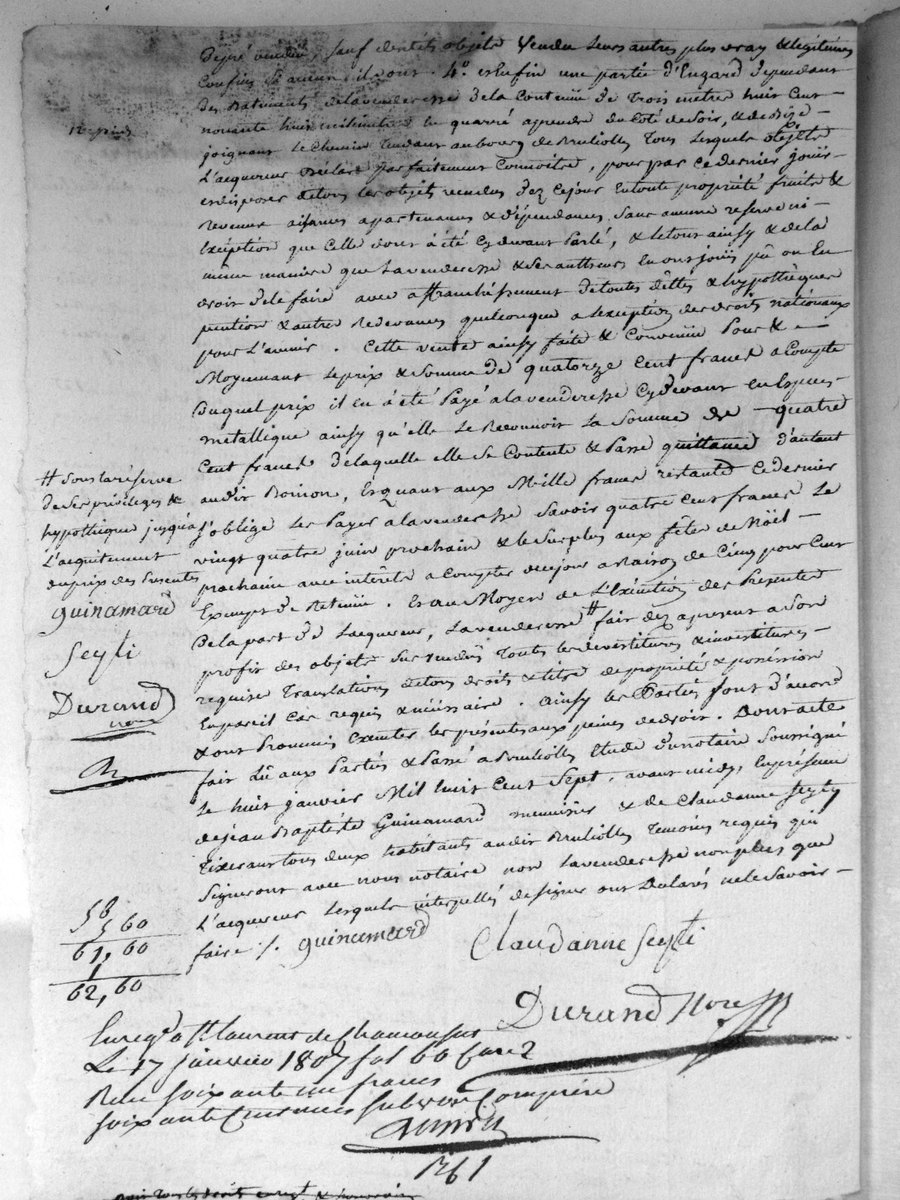 vendu, sauf desdits objets vendu leurs autres plus vray & légitimes
Confins Si aucun il y ont. 4º. & Enfin une partie d'Engard dependant
Des Batiments delavenderesse dela Contenüe De Trois metre huit Cent
nonante huit milimetre En quarré aprendre du Coté de Soir, & de Bize
joignant le Chemin tendant aubourg de Brulliolles Tous lesquels objets
L'acquereur Déclare parfaitement Connoitre, pour par ce dernier jouir
& disposer detous les objets vendus dez Cejour Entoute propriété fruits &
Revenus aisances apartenances & dépendances, Sans aucune reserve ni
Exéption que Celle dont à été Cydevant Parlé, & letout ainsy & dela
même maniere que Lavenderesse & Ses autheurs En ont joüis pû ou Eu
droit dele faire avec affranchissement detoutes dettes & hypothèques
pention & autres Redevances quelconque a lexception des droits nationaux
pour L'avenir. Cette vente ainsy faite & Convenüe Pour &
Moyennant Le prix & Somme de quatorze Cent francs a Compte
Duquel prix il En a été Payé alavenderesse Cydevant En Espèces
metallique ainsy qu'elle le Reconnoit La Somme de quatre
Cent francs delaquelle elle Se Contente & Passe quittance d'autant
audit Boinon, & quant aux Mille francs restants Cedernier
S'oblige les Payer alavenderesse Savoir quatre Cent francs Le
vingt quatre juin prochain & le Surplus aux fêtes de Noël
prochaine avec intérêts a Compter decejour a Raison de Cinq pour Cent
Exempt de Retenüe. Et au Moyen de L'Exécution des Presentes
Dela part de Lacquereur, Lavenderesse # fait dez apresent a Son
profit des objets Sus vendus Toutes les devestitures & investitures
requise Translations detous droits & titre de propriété & possession
En pareil Cas requis & nécessaire. Ainsy les Parties Sont d'accord
& ont Promis Exécuter les présentes aux peines dedroit. Dont acte
fait lû aux Parties & Passé a Brulliolles Etude dunotaire Soussigné
Le huit janvier Mil huit Cent Sept. avant midy, Enprésence
dejean Baptiste Guinamard menuisier & de Claudanne Seyty
Tixerant tous deux habitants audit Brulliolles Temoins requis qui
Signeront avec nous notaire non Lavenderesse non plus que
L'acquereur Lesquels interpellés designer ont Declarés nele Savoir
faire ./. guinamard
Claudanne Seyti
Durand Nore
# Sous la réserve
de Ses privileges &
hypothèque jusqu'a
L'acquitement
duprix des Presentes
guinamard
Seyti
Durand
nore
58
3, 60
61, 60
1
62, 60
Enregé a St. Laurent de Chamousset
Le 17 janvier 1807 fol 60 Case 2
Reçu Soixante un francs
Soixante Centimes Subvon Comprise
1261